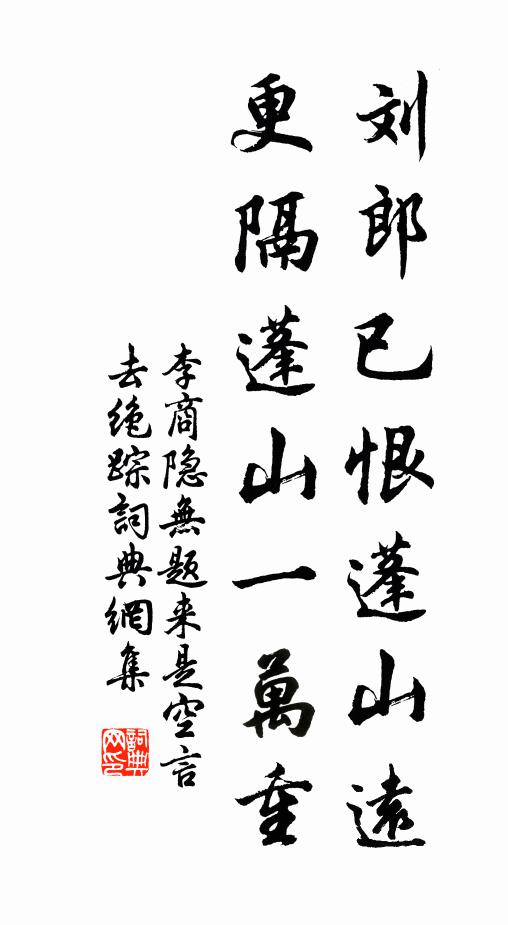 刘郎已恨蓬山遠
更隔蓬山一萬重
李商隐無题来是空言
去绝踪詞典網集
詞典
网印